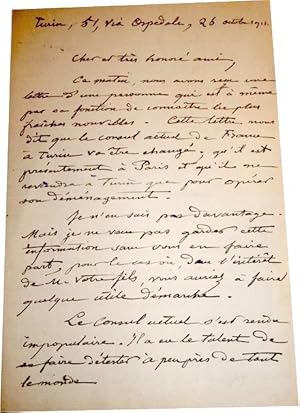 Turin, 51, Via Ospedale, 26 octobre
Cher et très honoré ami,
Ce matin, nous avons reçu une
lettre d'une personne qui est à même
par sa fonction de connaître les plus
fraîches nouvelles. Cette lettre nous
dit que le consul actuel de France
à Turin va être changé, qu'il est
présentement à Paris et qu'il ne
reviendra à Turin que pour opérer
son déménagement.
Je n'en sais pas davantage.
Mais je ne veux pas garder cette
information sans vous en faire
part, pour le cas où, dans l'intérêt
de Mr votre fils, vous auriez à faire
quelque utile démarche.
Le Consul actuel s'est rendu
impopulaire. Il a eu le talent de
se faire détester à peu près de tout
le monde